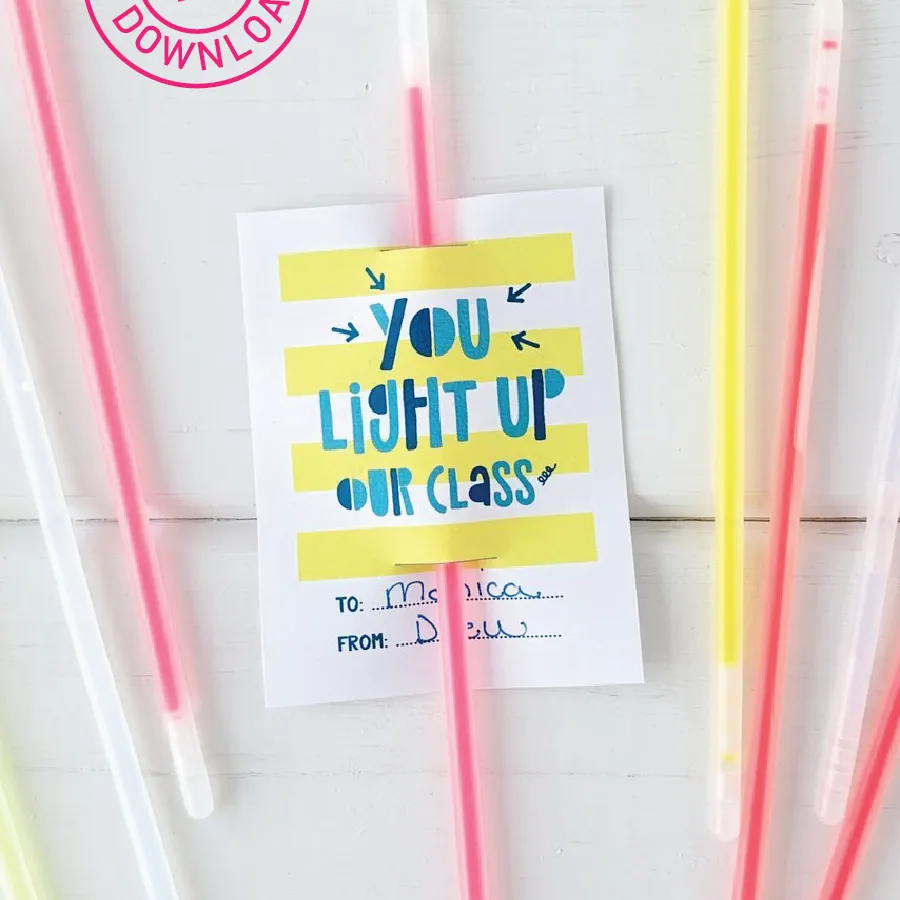 DOWNLOA
YOU
LigHT UP
OUR CLASS
TO:
FROM: